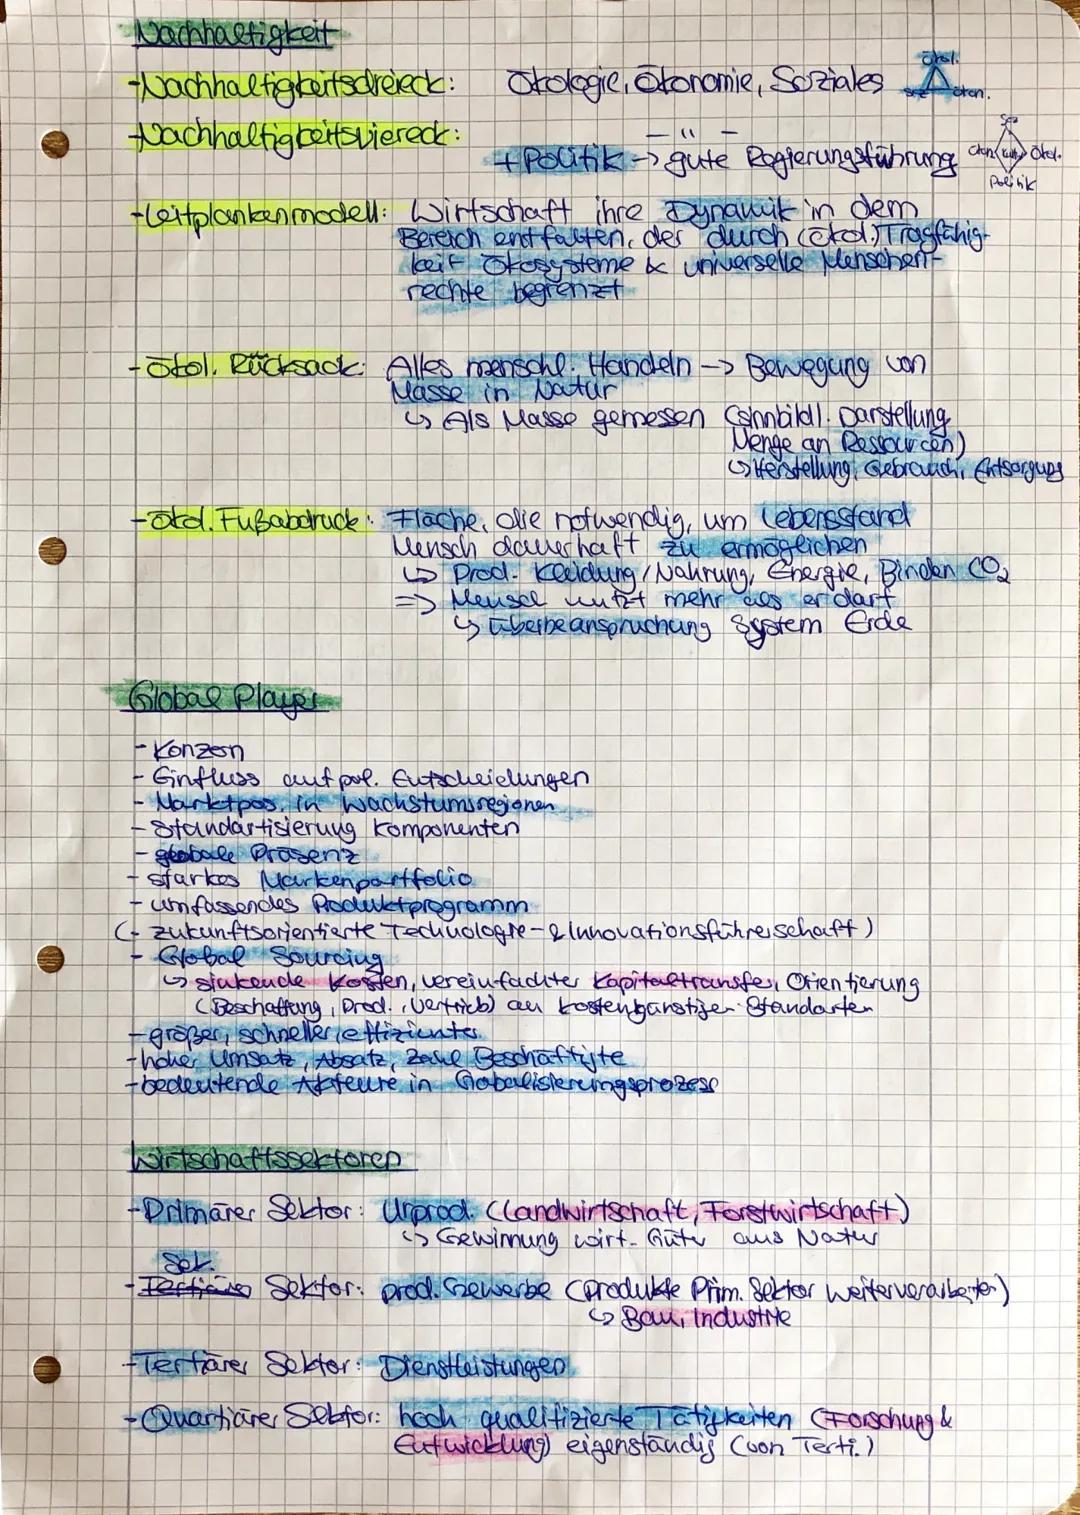 Nachhaltigkeit
-Nachhaltigkeitsdreieck: Ökologie, Ökonomie, Soziales
Ökol.
Soz. Ökon.
-Nachhaltigkeitsviereck: — " —
+ Politik -> gute Regierungsführung
Soz
Ökon. Ökol.
Politik
-Leitplankenmodell: Wirtschaft ihre Dynamik in dem
Bereich entfalten, der durch (ökol.) Tragfähig-
keit Ökosysteme & universelle Menschen-
rechte begrenzt
-Ökol. Rücksack: Alles menschl. Handeln -> Bewegung von
Masse in Natur
↳ Als Masse gemessen (sinnbildl. Darstellung
Menge an Ressourcen)
↳ Herstellung, Gebrauch, Entsorgung
-Ökol. Fußabdruck: Fläche, die notwendig, um Lebensstand
Mensch dauerhaft zu ermöglichen
↳ Prod. Kleidung/Nahrung, Energie, Binden CO₂
=> Mensch nutzt mehr als er darf
↳ Überbeanspruchung System Erde
Global Player
- Konzern
- Einfluss auf pol. Entscheidungen
- Marktpos. in Wachstumsregionen
- Standartisierung Komponenten
- globale Präsenz
- starkes Markenportfolio
- umfassendes Produktprogramm
(- zukunftsorientierte Technologie- & Innovationsführerschaft)
- Global Sourcing
↳ sinkende Kosten, vereinfachter Kapitaltransfer, Orientierung
(Beschaffung, Prod., Vertrieb) an kostengünstigen Standorten
- größer, schneller, effizienter
- hoher Umsatz, Absatz, Zahl Beschäftigte
- bedeutende Akteure in Globalisierungsprozess
Wirtschaftssektoren
-Primärer Sektor: Urprod. (Landwirtschaft, Forstwirtschaft)
↳ Gewinnung wirt. Güter aus Natur
Sek.
-Tertiärer Sektor: prod. Gewerbe (Produkte Prim. Sektor weiterverarbeiten)
↳ Bau, Industrie
-Tertiärer Sektor: Dienstleistungen
-Quartiärer Sektor: hoch qualifizierte Tätigkeiten (Forschung &
Entwicklung) eigenständig (von Terti.)